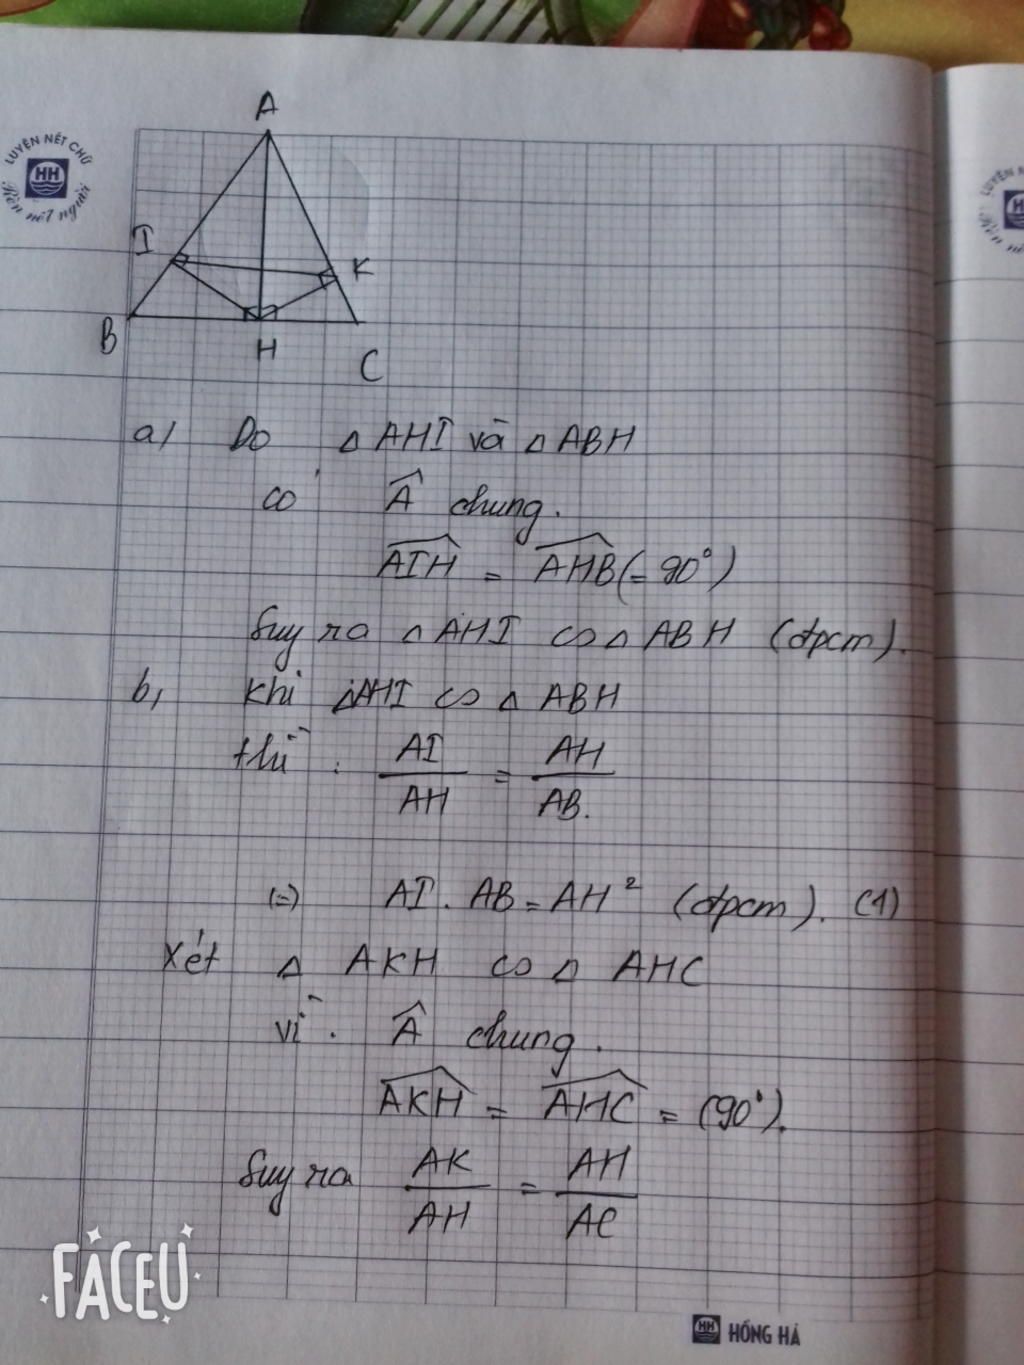 A
LUYỆN NÉT CHỮ
HH
Rèn nết người
LUYỆN N
I
K
B
H
C
a) Do △ AHI và △ ABH
có Â chung.
AIH = AHB (= 90°)
Suy ra △ AHI ∽ △ ABH (đpcm).
b, Khi △AHI ∽ △ ABH
thì: AI/AH = AH/AB.
(=) AI . AB = AH² (đpcm). (1)
Xét △ AKH ∽ △ AHC
vì. Â chung.
AKH = AHC = (90°).
Suy ra AK/AH = AH/AC
FACEU
HH HỒNG HÀ